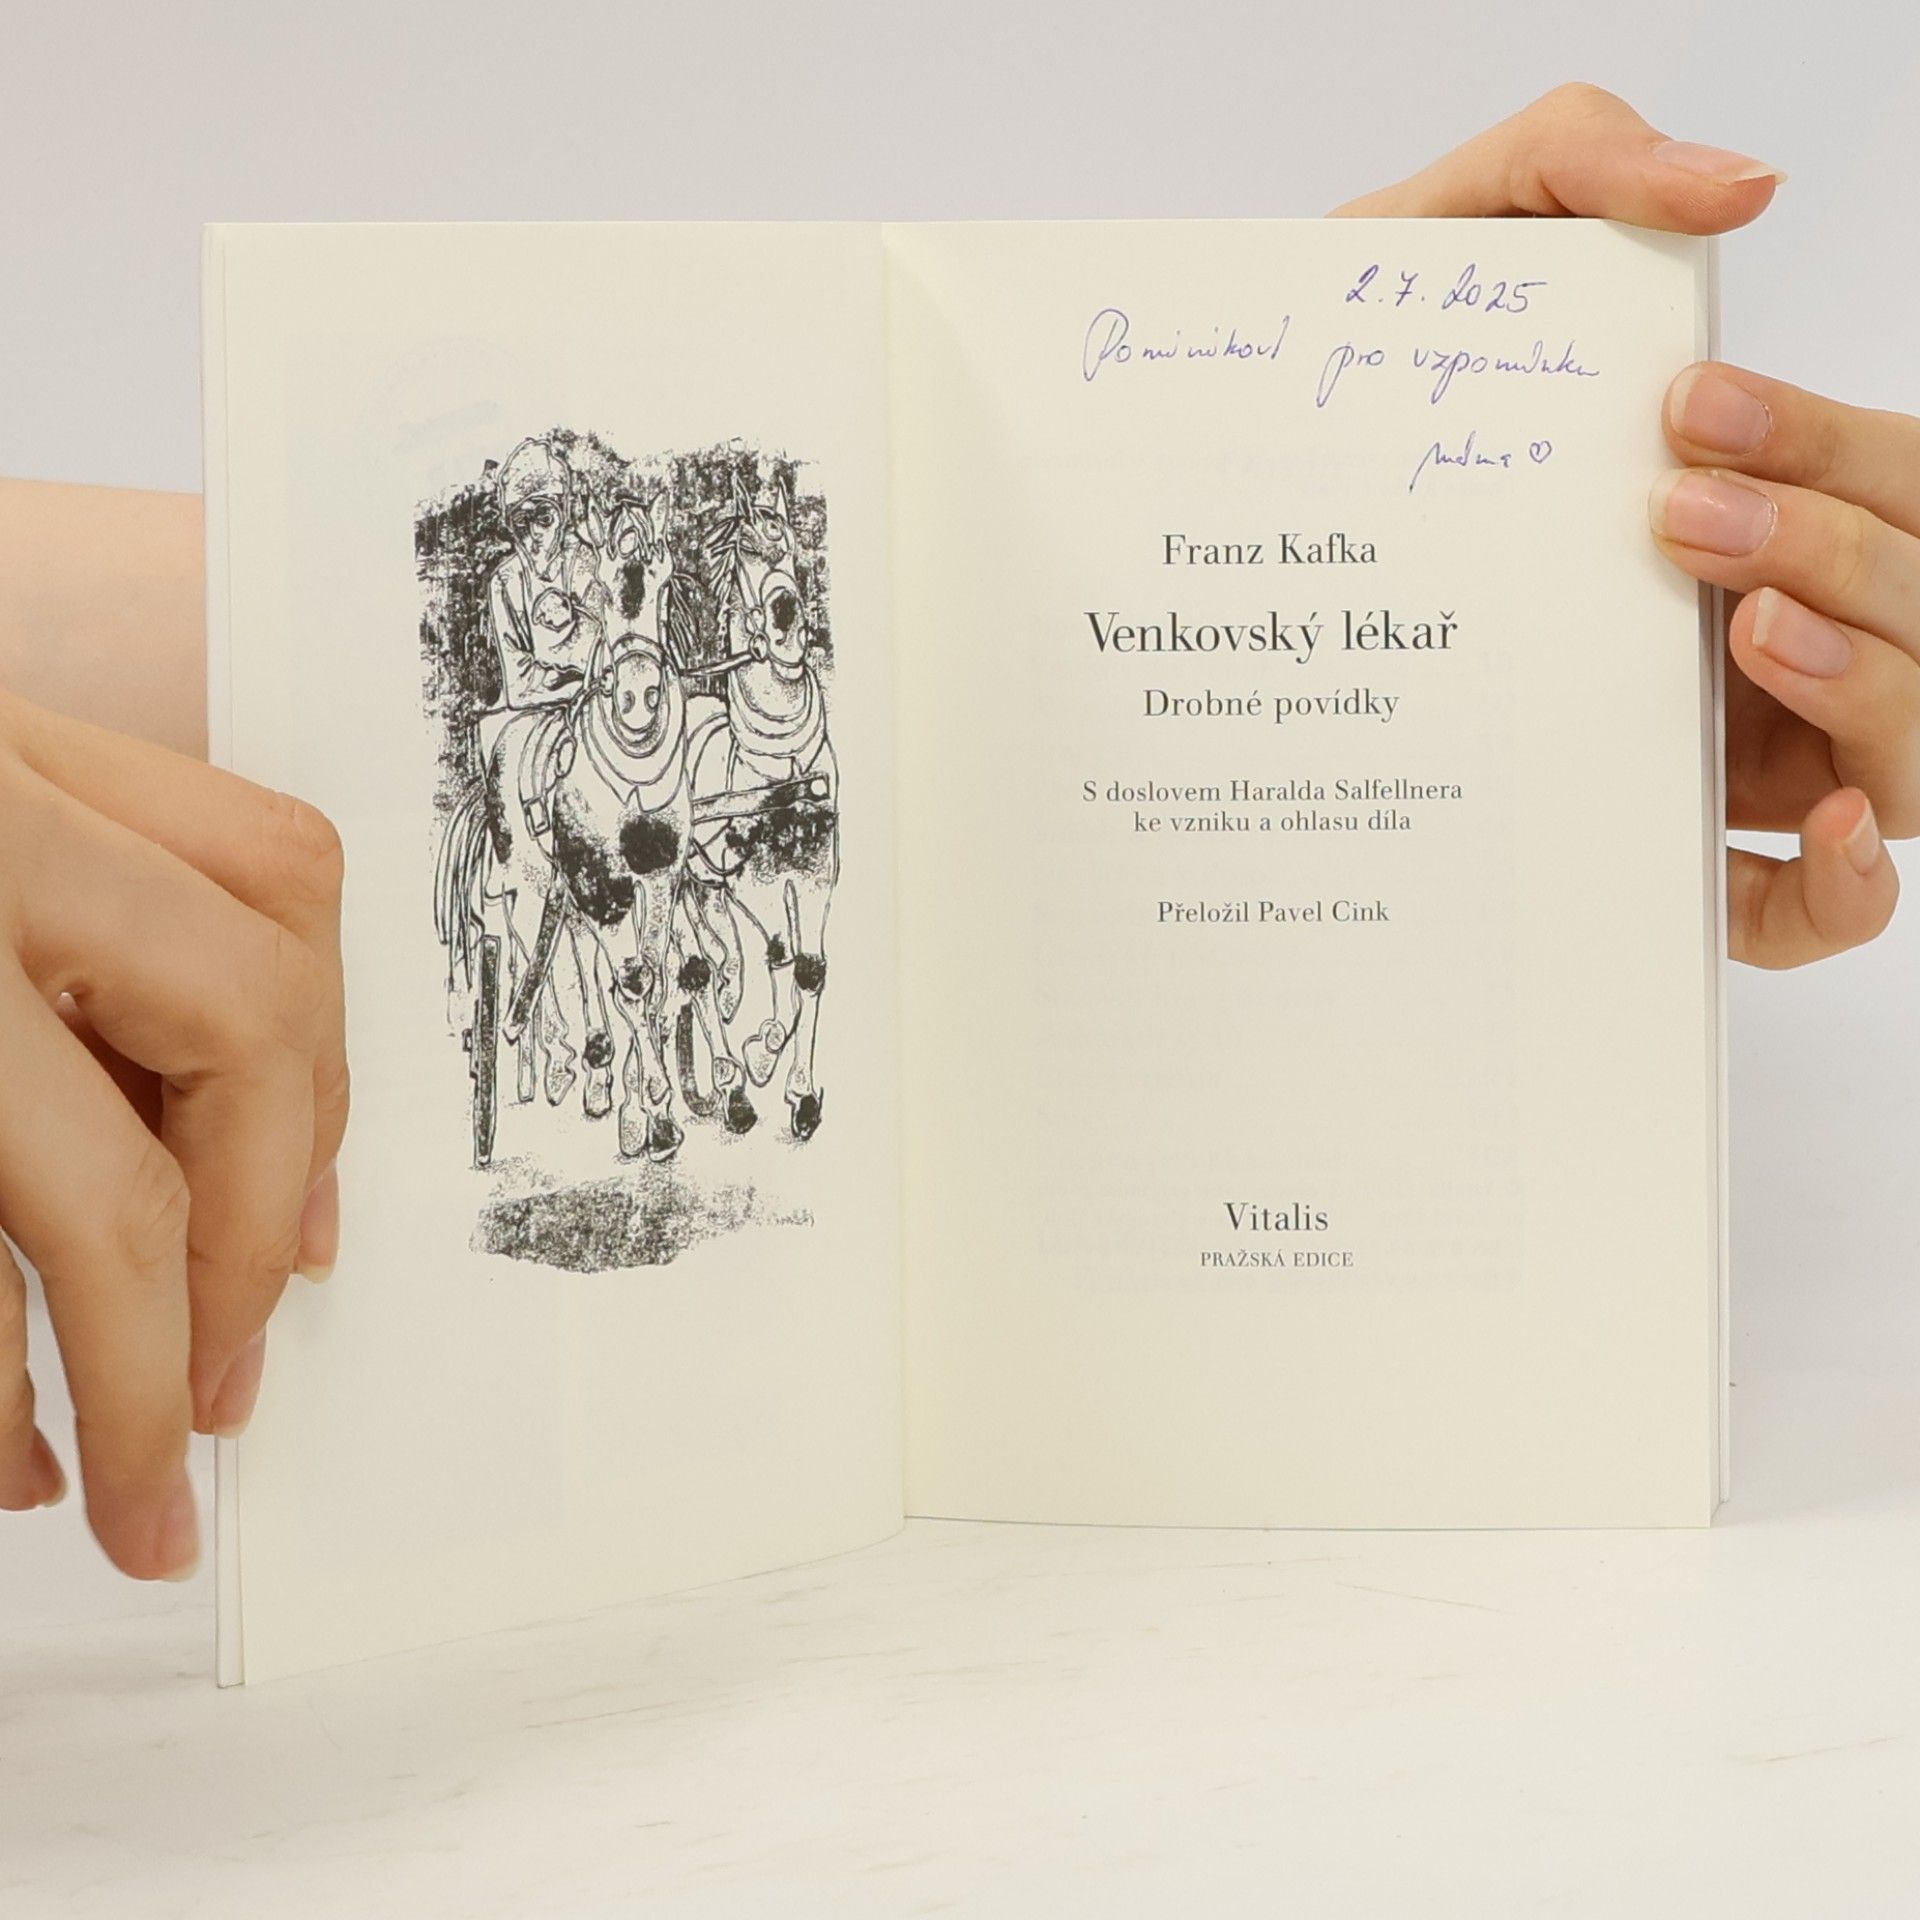 2.7.2025
Dominikovi pro vzpomínku
máma ♡
Franz Kafka
Venkovský lékař
Drobné povídky
S doslovem Haralda Salfellnera
ke vzniku a ohlasu díla
Přeložil Pavel Cink
Vitalis
PRAŽSKÁ EDICE